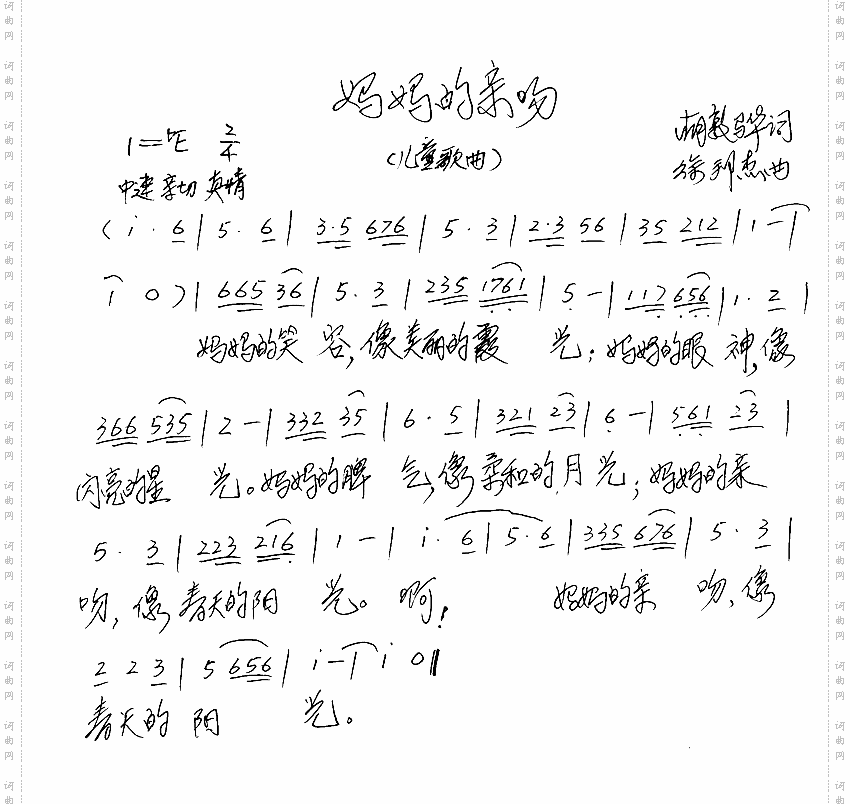 妈妈的亲吻
1=♭E 2/4
(儿童歌曲)
胡敦骅词
中速 亲切 真情
徐邦杰曲
(i·6|5·6|3·5 676|5·3|2·3 56|35 212|1-|
1 0)|665 36|5·3|235 1761|5-|117 656|1·2|
妈妈的笑 容,像美丽的霞 光;妈妈的眼 神,像
366 535|2-|332 35|6·5|321 23|6-|561 23|
闪亮的星 光。妈妈的脾 气,像柔和的月光;妈妈的亲
5·3|223 216|1-|i·6|5·6|335 676|5·3|
吻,像春天的阳 光。啊! 妈妈的亲 吻,像
2 2 3|5 656|i-|i 0‖
春天的 阳 光。
词曲网